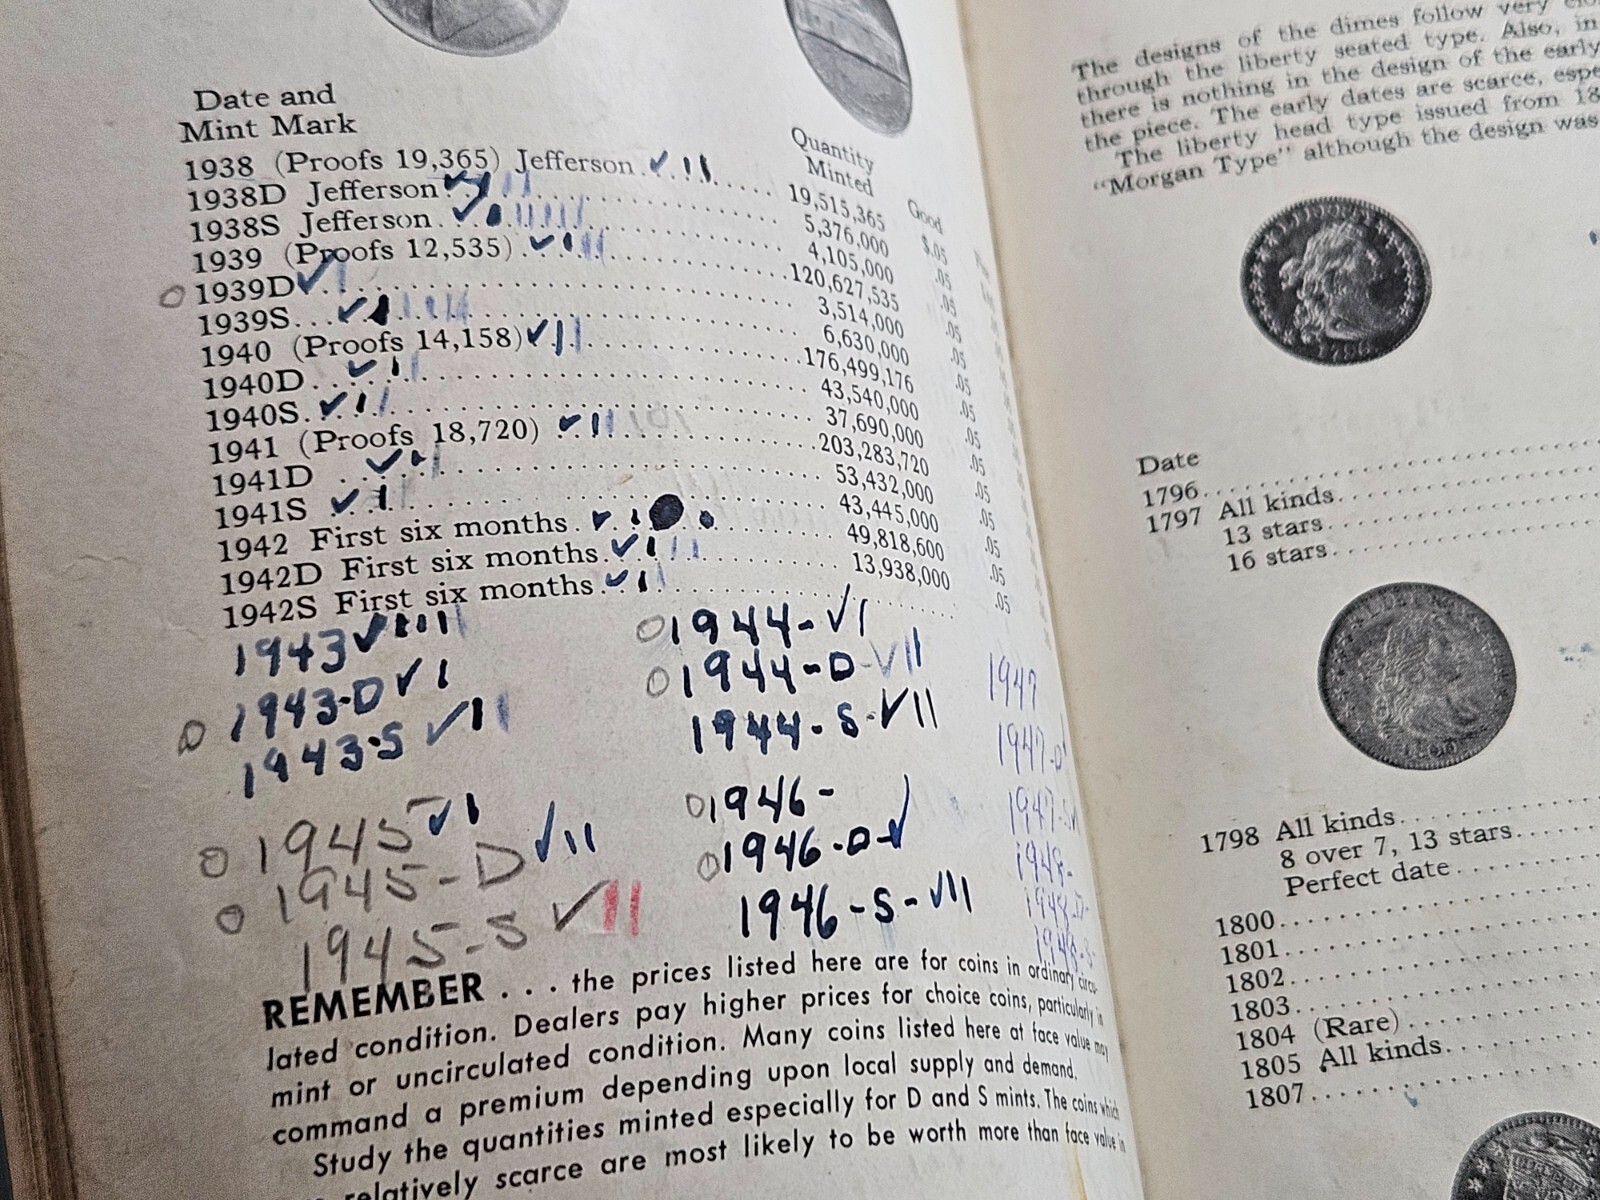 Date and
Mint Mark
Quantity
Minted
Good
1938 (Proofs 19,365) Jefferson ✓ 19,515,365 $.05
1938D Jefferson ✓ 5,376,000 .05
1938S Jefferson ✓ 4,105,000 .05
1939 (Proofs 12,535) ✓ 120,627,535 .05
1939D ✓ 3,514,000 .05
1939S ✓ 6,630,000 .05
1940 (Proofs 14,158) ✓ 176,499,176 .05
1940D ✓ 43,540,000 .05
1940S ✓ 37,690,000 .05
1941 (Proofs 18,720) ✓ 203,283,720 .05
1941D ✓ 53,432,000 .05
1941S ✓ 43,445,000 .05
1942 First six months ✓ 49,818,600 .05
1942D First six months ✓ 13,938,000 .05
1942S First six months ✓ .05
1943 ✓
1943-D ✓ I
1943-S ✓ II
1945 ✓ I
1945-D ✓ II
1945-S ✓ II
1944- ✓ I
1944-D ✓ II
1944-S- ✓ II
1946-
1946-D- ✓
1946-S- ✓ II
1947
1947-D
1947-S
1948-
1948-D-
1948-S-
REMEMBER . . . the prices listed here are for coins in ordinary circu-
lated condition. Dealers pay higher prices for choice coins, particularly in
mint or uncirculated condition. Many coins listed here at face value may
command a premium depending upon local supply and demand.
Study the quantities minted especially for D and S mints. The coins which
relatively scarce are most likely to be worth more than face value in
The designs of the dimes follow very
through the liberty seated type. Also, in
there is nothing in the design of the early
the piece. The early dates are scarce,
The liberty head type issued from
"Morgan Type" although the design was
1796
Date
1796
1797 All kinds
13 stars
16 stars
1798 All kinds
8 over 7, 13 stars
Perfect date
1800
1801
1802
1803
1804 (Rare)
1805 All kinds
1807